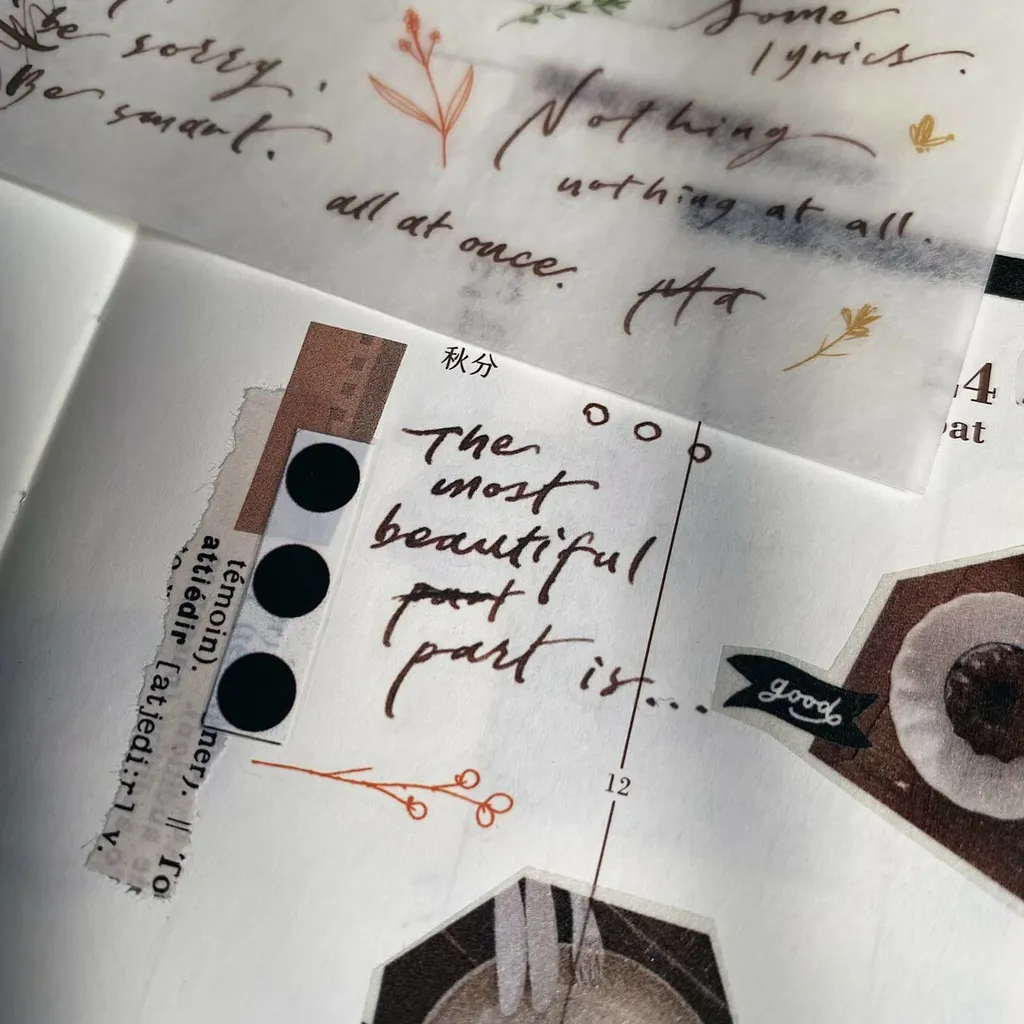 Be sorry.
Be smart.
Some
lyrics.
Nothing
nothing at all.
all at once.
秋分
4
at
The
most
beautiful
part
part is...
good
12
témoin).
attiédir [atjedi:r] v.
ner). || To